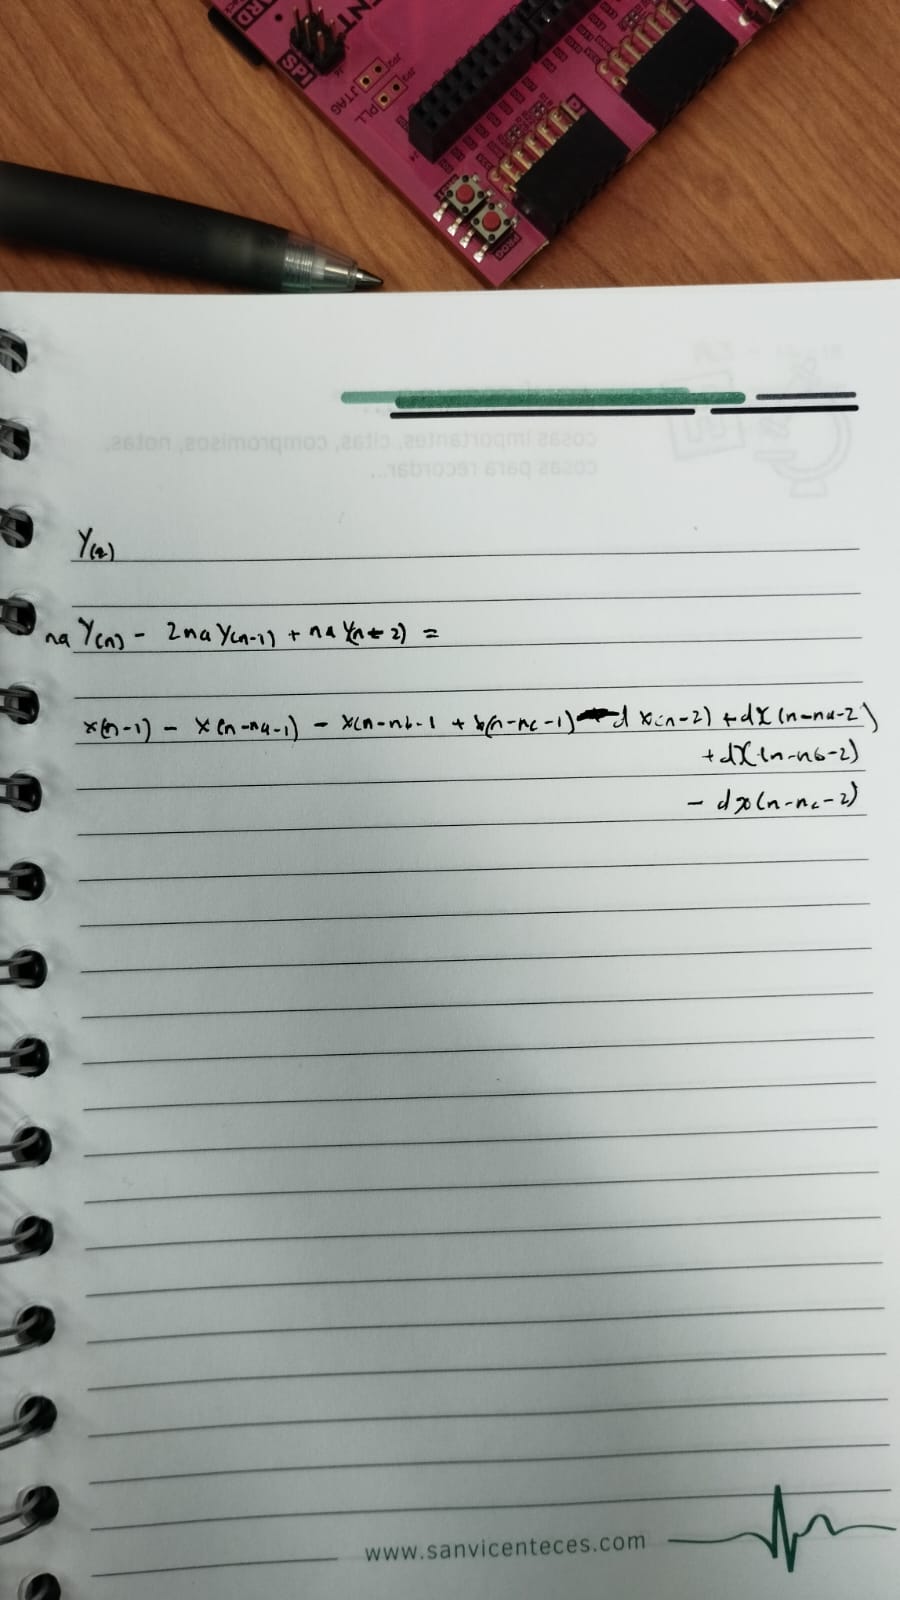 SPI
JTAG
PLL
PROG
cosas importantes, citas, compromisos, notas,
cosas para recordar...
Y(z)
na Y(n) - 2na Y(n-1) + na Y(n-2) =
x(n-1) - x(n-na-1) - x(n-nb-1 + x(n-nc-1) - d x(n-2) + dx(n-na-2)
+ dx(n-nb-2)
- dx(n-nc-2)
www.sanvicenteces.com